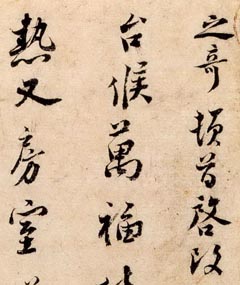 之奇頓首啓改
台候萬福
熱又房室